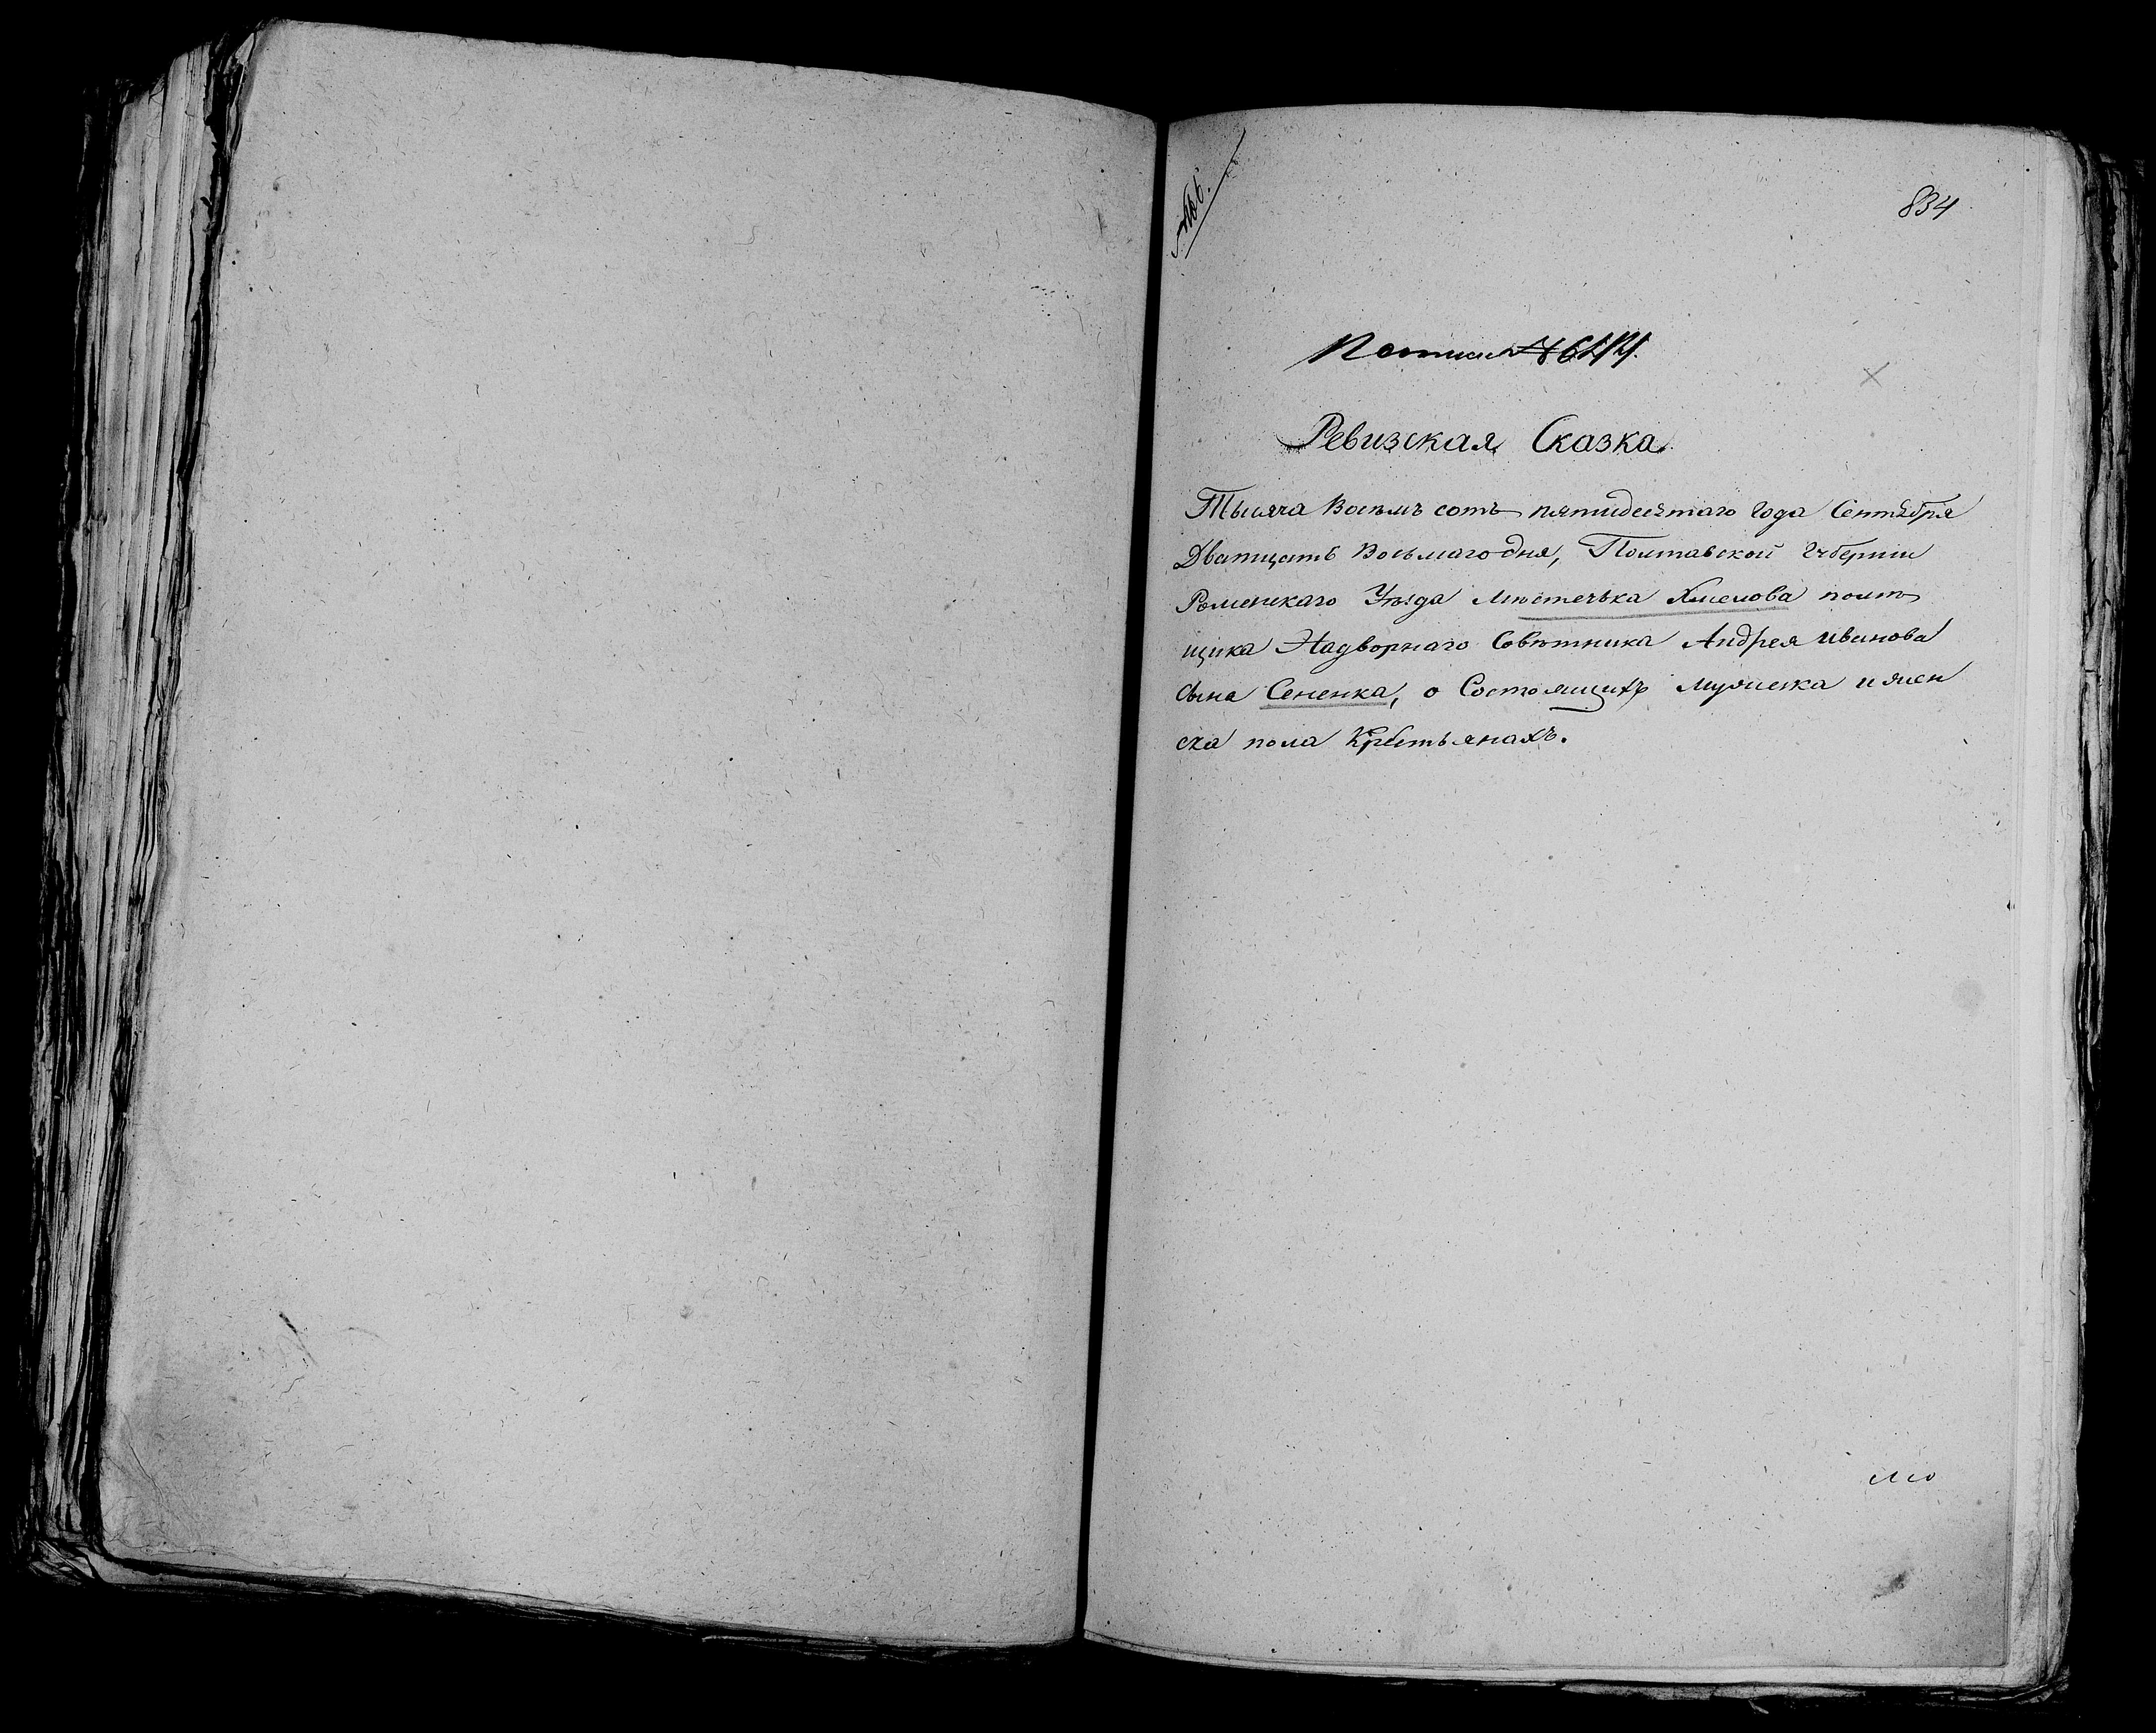 834
Ревизская Сказка
Тысяча Восемъ сотъ пятидесятаго года Сентября
Дватцать Восьмаго дня, Полтавской Губернии
Роменскаго Уѣзда Мѣстечька Хмелова помѣ
щика Надворнаго Совѣтника Андрея Иванова
сына Сененка, о Состоящихъ мужеска и жен
ска пола Крестьянахъ.